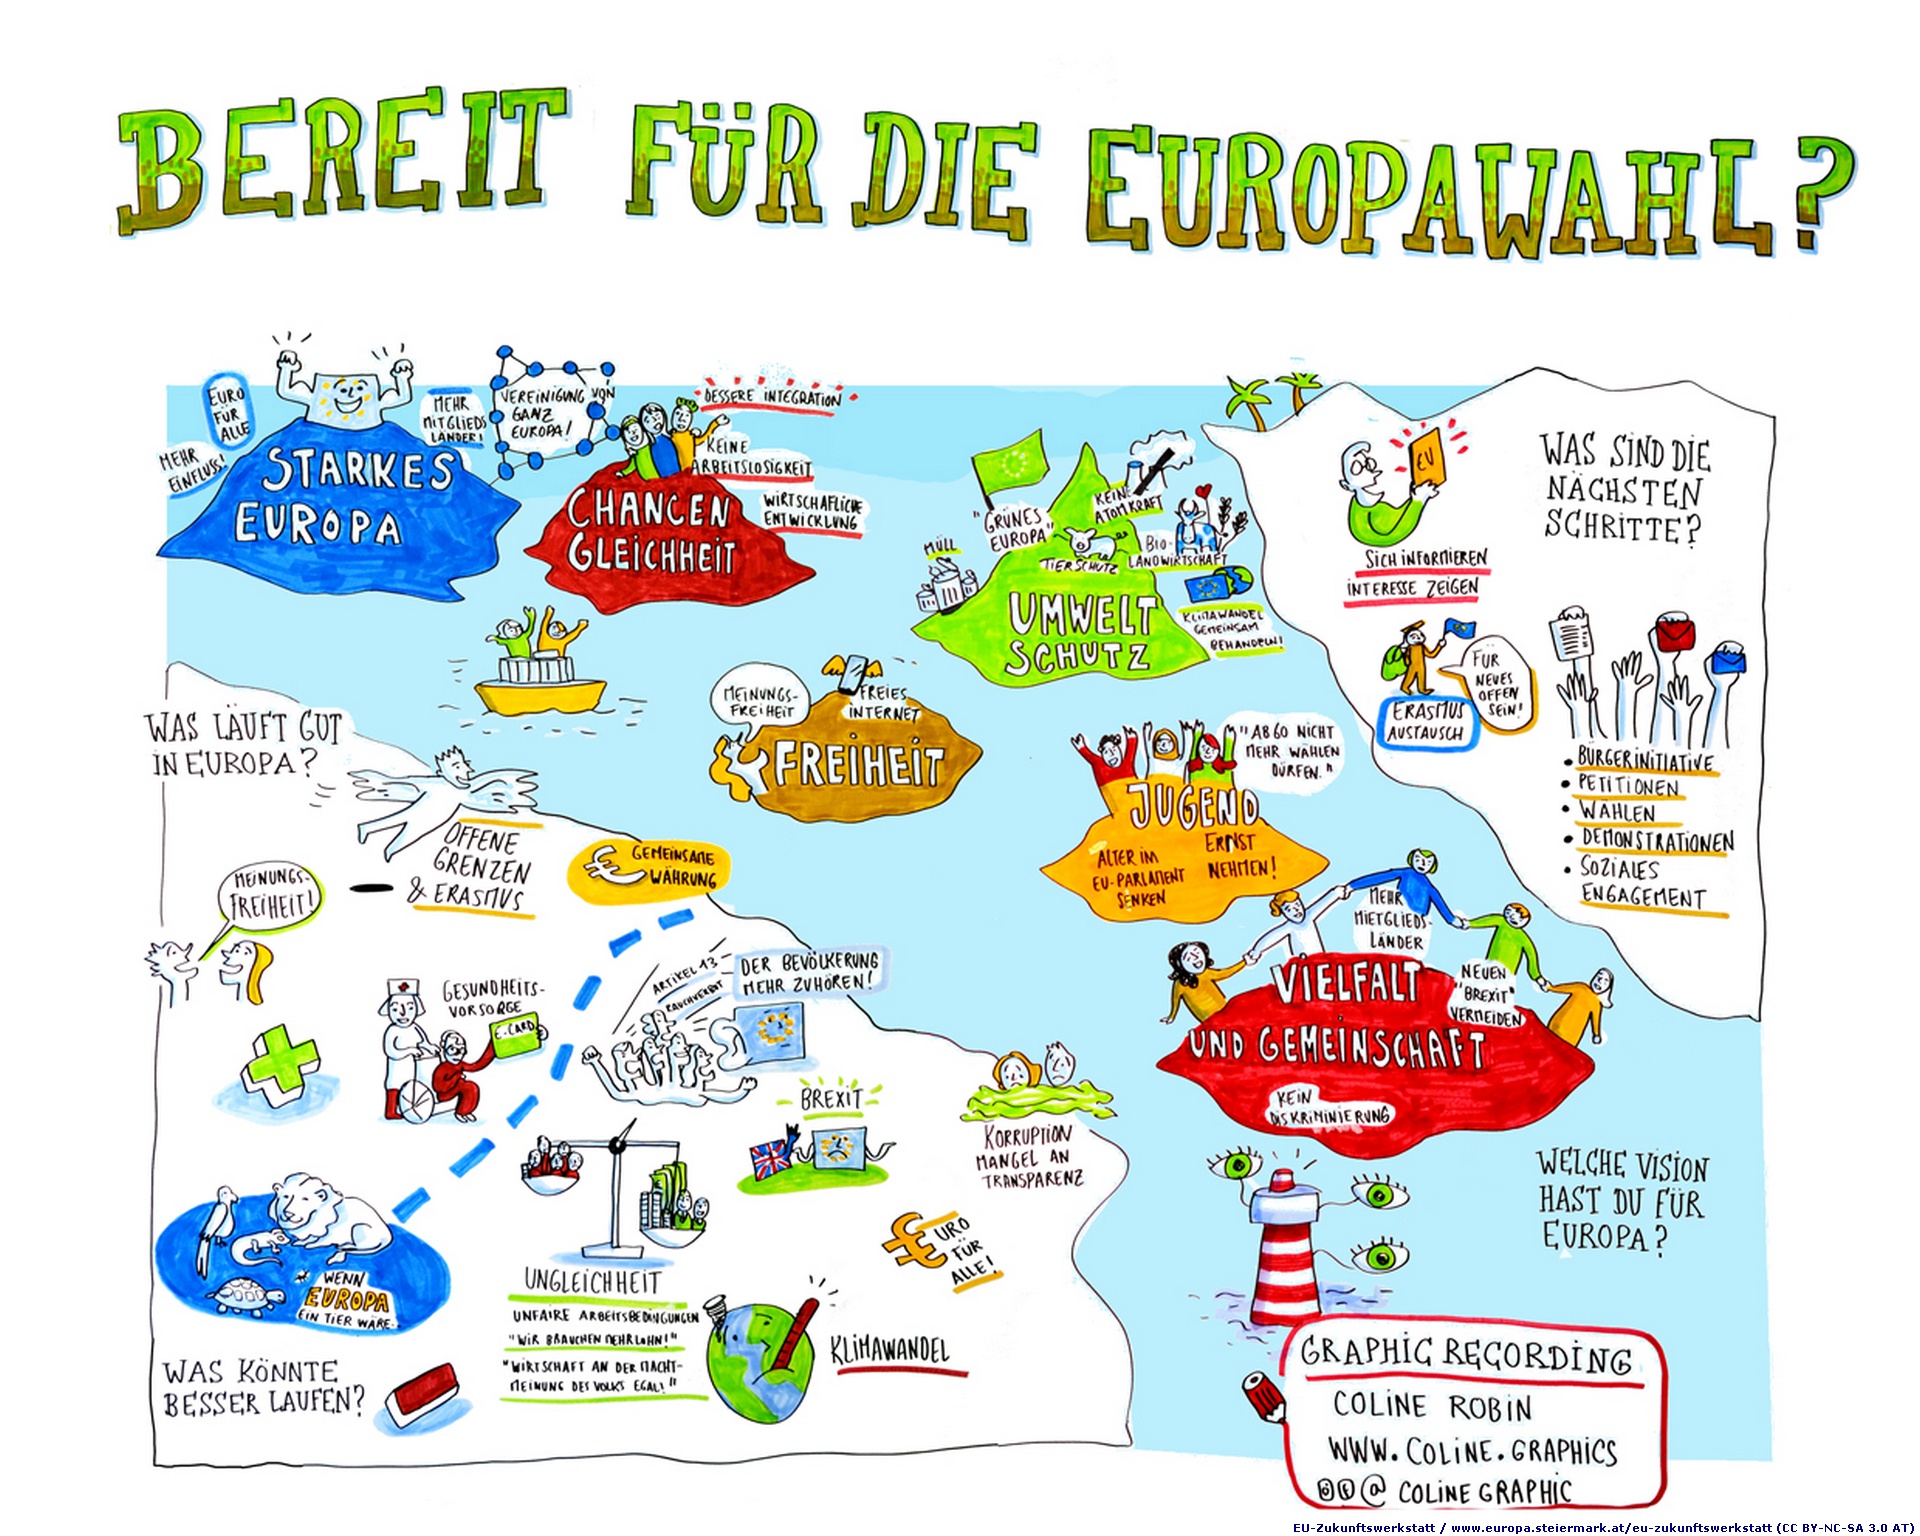 BEREIT FÜR DIE EUROPAWAHL?
EURO
FÜR
ALLE
MEHR
EINFLUSS!
STARKES
EUROPA
MEHR
MITGLIEDS
LÄNDER!
VEREINIGUNG VON
GANZ
EUROPA!
BESSERE INTEGRATION
KEINE
ARBEITSLOSIGKEIT
WIRTSCHAFLICHE
ENTWICKLUNG
CHANCEN
GLEICHHEIT
"GRÜNES
EUROPA"
KEINE
ATOMKRAFT
MÜLL
TIERSCHUTZ
BIO-
LANDWIRTSCHAFT
UMWELT
SCHUTZ
KLIMAWANDEL
GEMEINSAM
BEHANDELN!
EU
SICH INFORMIEREN
INTERESSE ZEIGEN
WAS SIND DIE
NÄCHSTEN
SCHRITTE?
FÜR
NEUES
OFFEN
SEIN!
ERASMUS
AUSTAUSCH
• BÜRGERINITIATIVE
• PETITIONEN
• WÄHLEN
• DEMONSTRATIONEN
• SOZIALES
ENGAGEMENT
MEINUNGS-
FREIHEIT
FREIES
INTERNET
FREIHEIT
"AB 60 NICHT
MEHR WÄHLEN
DÜRFEN."
JUGEND
ALTER IM
EU-PARLAMENT
SENKEN
ERNST
NEHMEN!
MEHR
MIETGLIEDS-
LÄNDER
NEUEN
"BREXIT"
VERMEIDEN
VIELFALT
UND GEMEINSCHAFT
KEIN
DISKRIMINIERUNG
WELCHE VISION
HAST DU FÜR
EUROPA?
WAS LÄUFT GUT
IN EUROPA?
OFFENE
GRENZEN
& ERASMUS
€ GEMEINSAME
WÄHRUNG
MEINUNGS-
FREIHEIT!
GESUNDHEITS-
VORSORGE
E-CARD
ARTIKEL 13
RAUCHVERBOT
DER BEVÖLKERUNG
MEHR ZUHÖREN!
BREXIT
KORRUPTION
MANGEL AN
TRANSPARENZ
WENN
EUROPA
EIN TIER WÄRE..
WAS KÖNNTE
BESSER LAUFEN?
UNGLEICHHEIT
UNFAIRE ARBEITSBEDINGUNGEN
"WIR BRAUCHEN MEHR LOHN!"
"WIRTSCHAFT AN DER MACHT-
MEINUNG DES VOLKS EGAL!"
€URO
FÜR
ALLE!
KLIMAWANDEL
GRAPHIC RECORDING
COLINE ROBIN
WWW.COLINE.GRAPHICS
@ COLINE GRAPHIC
EU-Zukunftswerkstatt / www.europa.steiermark.at/eu-zukunftswerkstatt (CC BY-NC-SA 3.0 AT)